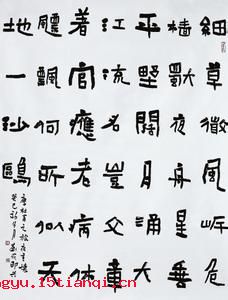 細草微風岸危
檣獨夜舟星垂
平野闊月涌大
江流名豈文章
著官應老病休
飄飄何所似天
地一沙鷗
唐杜甫之旅夜書懷
癸巳
gyu.15tianqi.cn